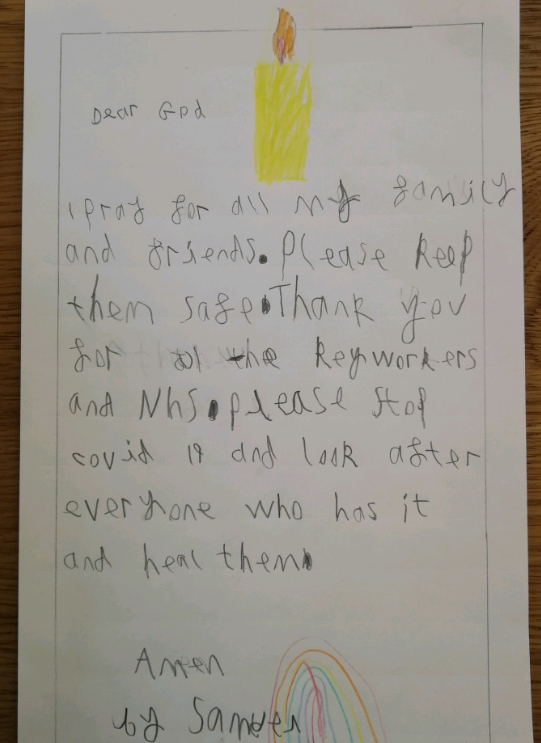 Dear God
I pray for all my family
and friends. Please keep
them safe. Thank you
for al the keyworkers
and NhS. please stop
covid 19 and look after
everyhone who has it
and heal them.
Amen
by Sander